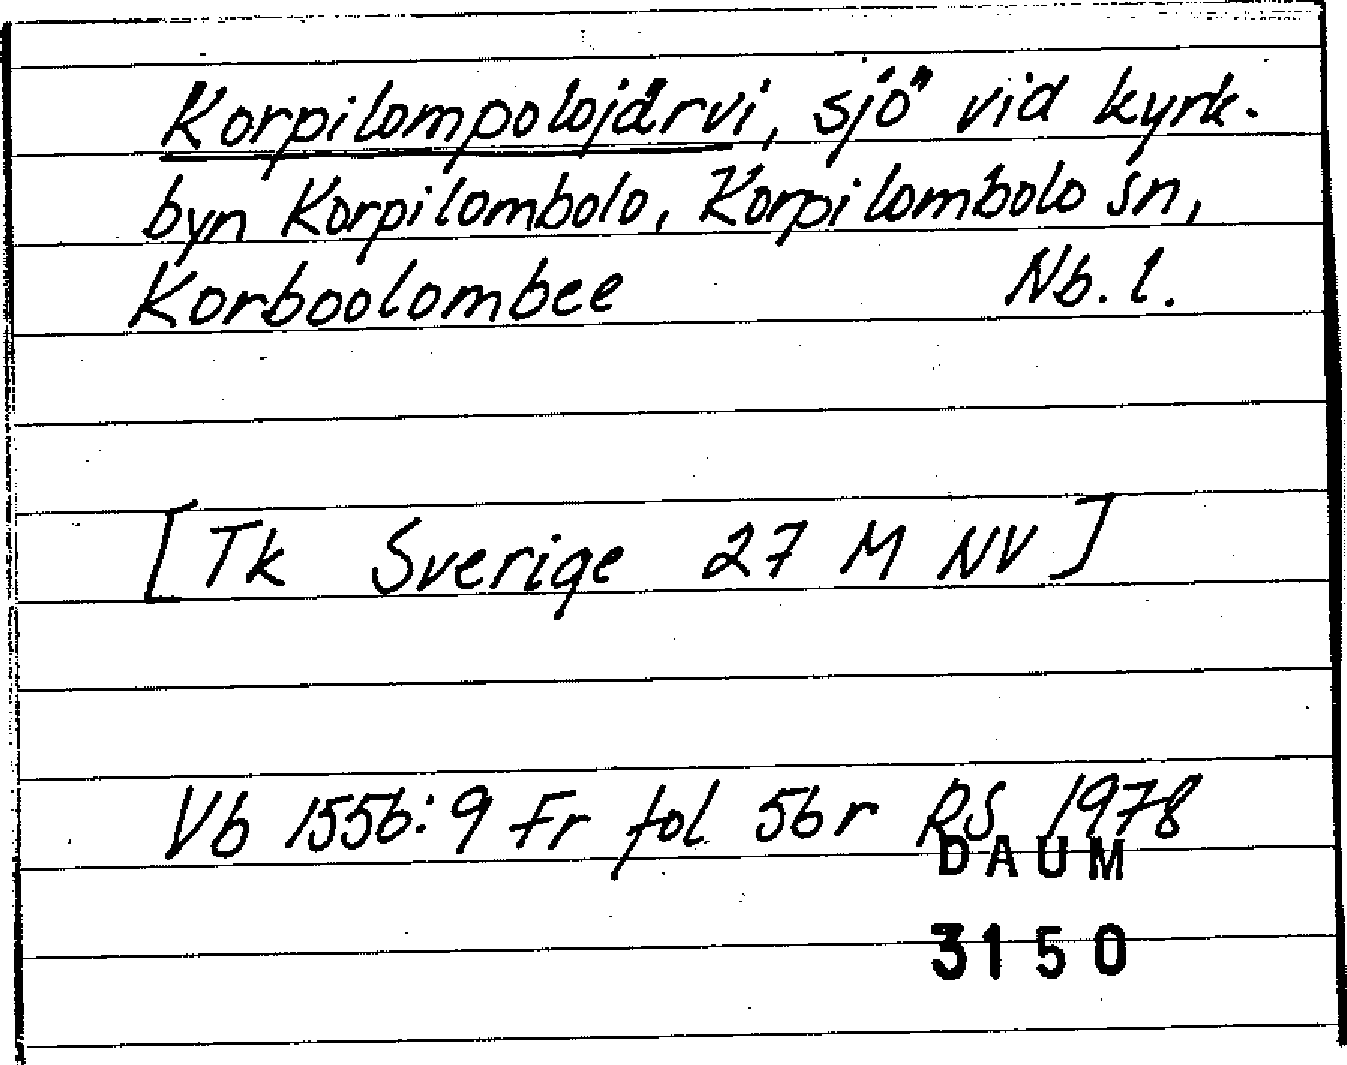 Korpilompolojärvi, sjö vid kyrk-
byn Korpilombolo, Korpilombolo sn,
Korboolombee Nb. l.
[Tk Sverige 27 M NV]
Vb 1556:9 Fr fol 56r RS 1978
DAUM
3150